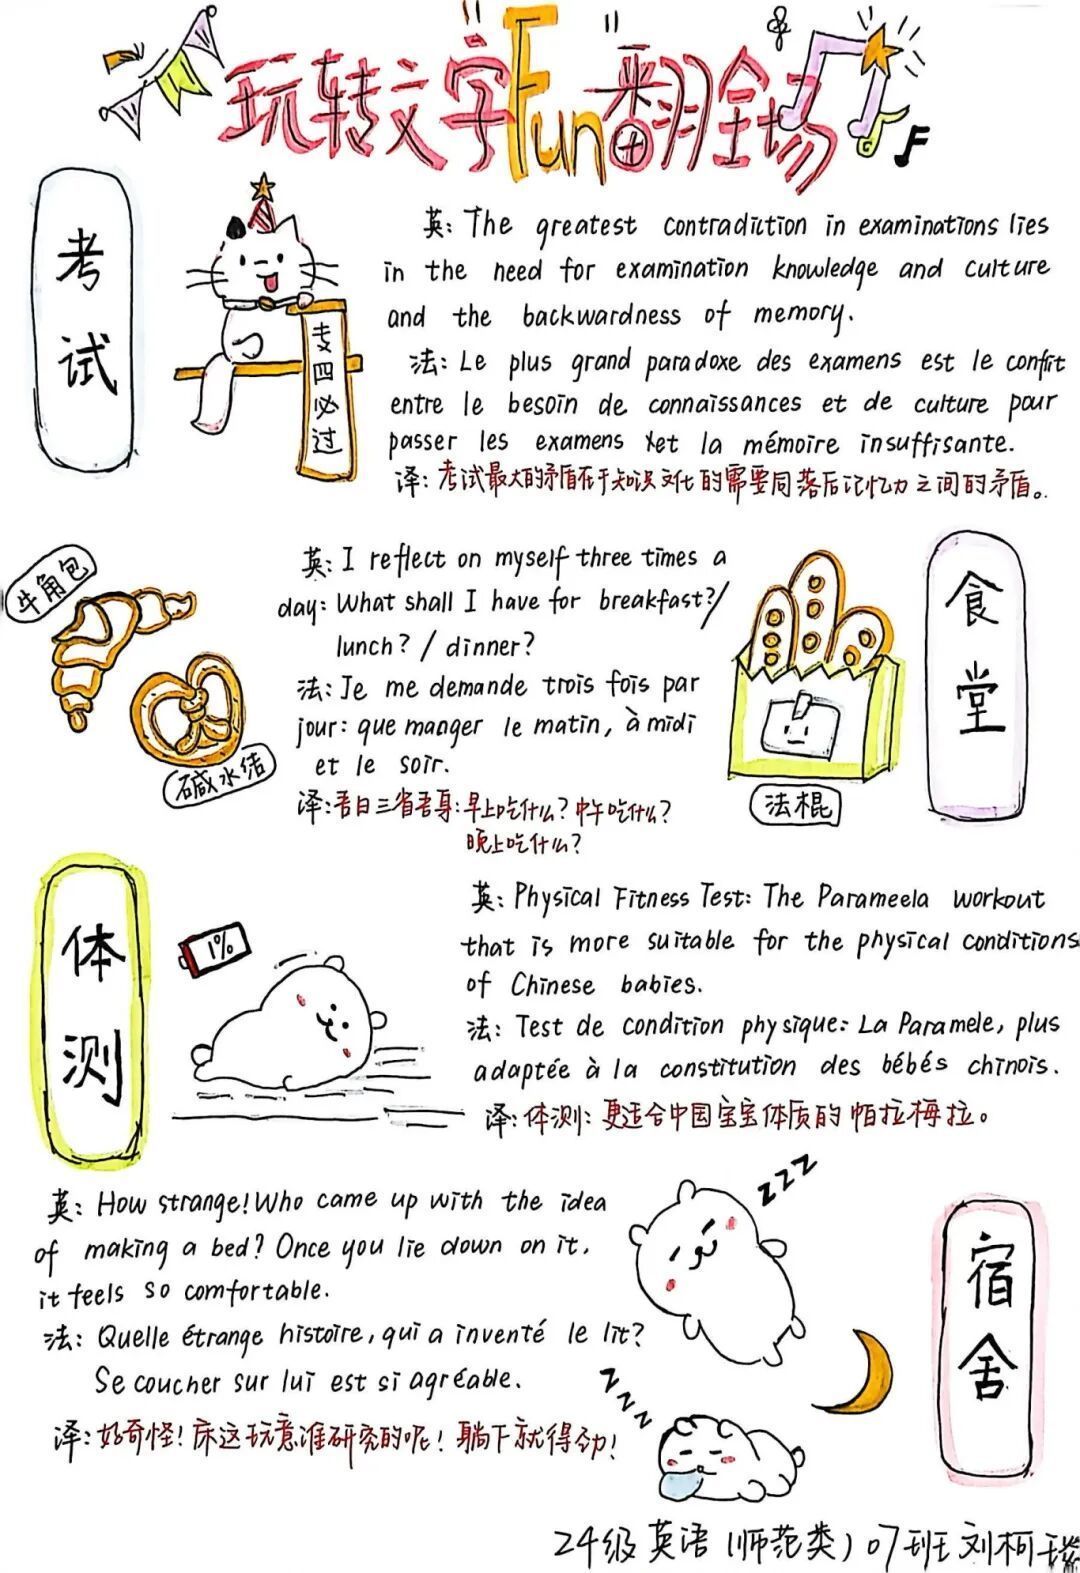 玩转文字Fun翻全场
考试
专四必过
英: The greatest contradiction in examinations lies
in the need for examination knowledge and culture
and the backwardness of memory.
法: Le plus grand paradoxe des examens est le conflit
entre le besoin de connaissances et de culture pour
passer les examens et la mémoire insuffisante.
译: 考试最大的矛盾在于知识文化的需要同落后记忆力之间的矛盾。
牛角包
碱水结
英: I reflect on myself three times a
day: What shall I have for breakfast?/
lunch? / dinner?
法: Je me demande trois fois par
jour: que manger le matin, à midi
et le soir.
译: 吾日三省吾身: 早上吃什么? 中午吃什么?
晚上吃什么?
法棍
食堂
体测
1%
英: Physical Fitness Test: The Parameela workout
that is more suitable for the physical conditions
of Chinese babies.
法: Test de condition physique: La Paramele, plus
adaptée à la constitution des bébés chinois.
译: 体测: 更适合中国宝宝体质的帕拉梅拉。
英: How strange! Who came up with the idea
of making a bed? Once you lie down on it,
it feels so comfortable.
法: Quelle étrange histoire, qui a inventé le lit?
Se coucher sur lui est si agréable.
译: 好奇怪! 床这玩意谁研究的呢! 躺下就得劲!
zzz
zzz
宿舍
24级英语(师范类)07班刘柯